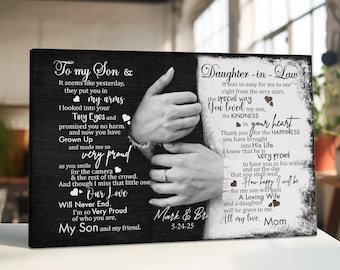 To my Son &
It seems like yesterday,
they put you in
my arms
I looked into your
Tiny Eyes and
promised you no harm.
and now you have
Grown Up
and made me so
very proud
as you smile
for the camera
& the rest of the crowd.
And though I miss that little one
Our Love
Will Never End.
I'm so Very Proud
of who you are,
My Son and my friend.
Daughter-in-Law
It was so easy for me to see
right from the very start,
the special way
You loved my son,
the KINDNESS
in your heart
Thank you for the HAPPINESS
you have brought
into His Life
I know that he is
very proud
to have you as his bride
and on the day
that you shall wed
How happy I will be
for my son will gain
A Loving Wife
and a daughter
will be given to me.
All my love,
Mom
Mark &
5-24-25